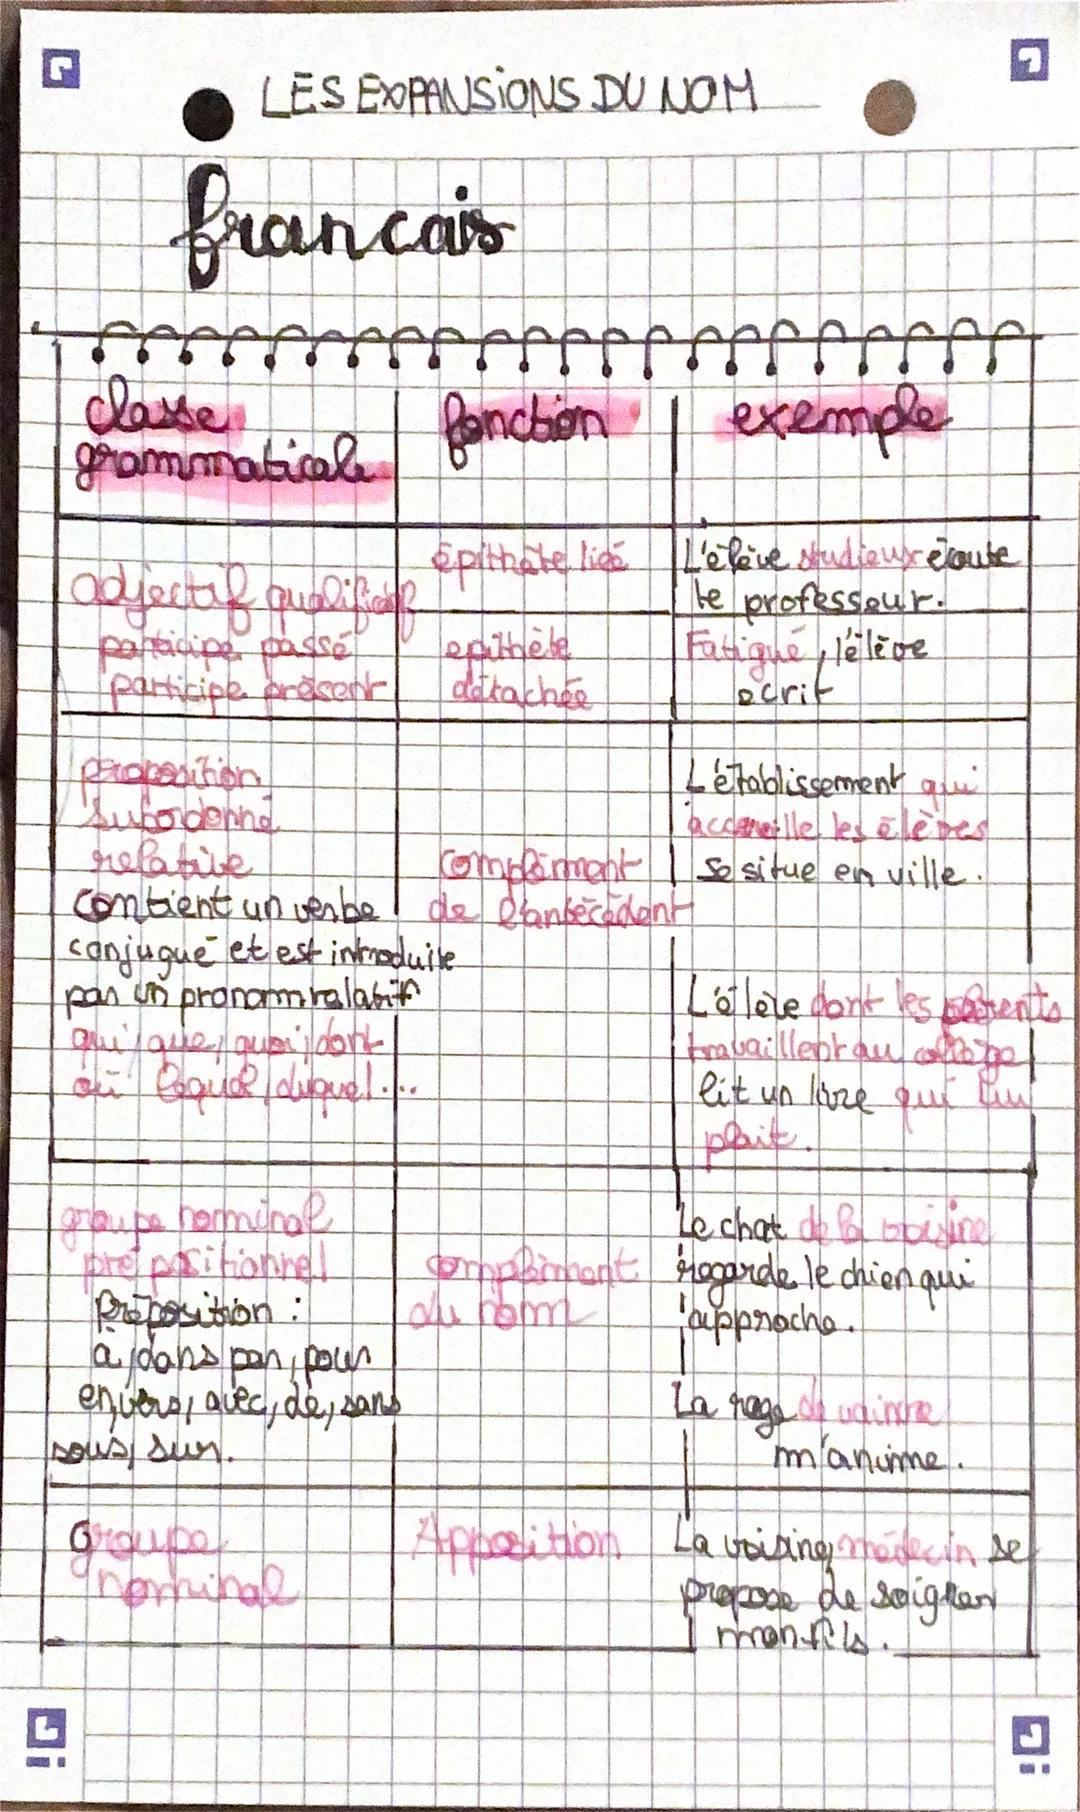 LES EXPANSIONS DU NOM
francais
classe
grammaticale
fonction
exemple
adjectif qualificatif
participe passé
participe présent
épithète liée
L'élève studieux écoute
le professeur.
epithète
détachée
Fatigué, l'élève
ecrit
proposition
subordonné
relative
contient un verbe
conjugué et est introduite
par un pronom relatif
qui, que, quoi, dont
où lequel, duquel...
complément
de l'antécédent
L'établissement qui
accueille les élèves
se situe en ville.
L'élève dont les parents
travaillent au collège
lit un livre qui lui
plait.
groupe nominal
prépositionnel
Préposition :
à, dans par, pour
en, vers, avec, de, sans
sous, sur.
complément
du nom
Le chat de la voisine
regarde le chien qui
l'approche.
La rage de vaincre
m'anime.
Groupe
nominal
Apposition
La voisine, médecin se
propose de soigner
mon fils.